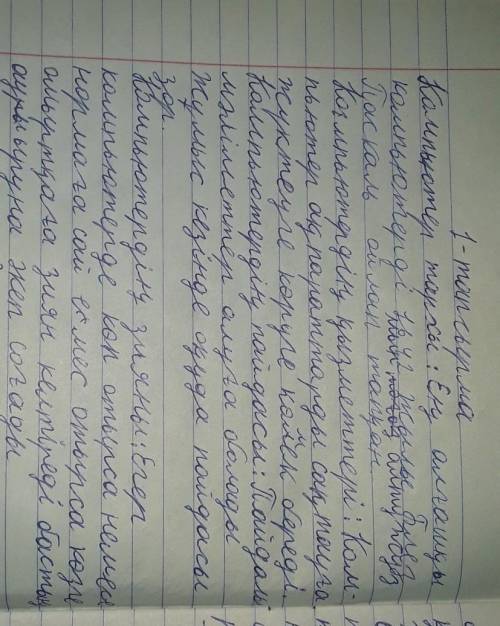 1-тапсырма
Компьютер тарихы: Ең алғашқы
компьютерді 1642 жылы Блез
Паскаль ойлап тапқан.
Компьютердің қызметтері: Ком-
пьютер ақпараттарды сақтауға
жүктеуге көруге көмек береді.
Компьютердің пайдасы: Пайдалы
мәліметтер алуға болады
Жұмыс кезінде оқуда пайдасы
зор.
Компьютердің зияны: Егер
компьютерде көп отырса немесе
нормаға сай емес отырса көзге
омыртқаға зиян келтіреді бастың
ауыруына әкеп соғады